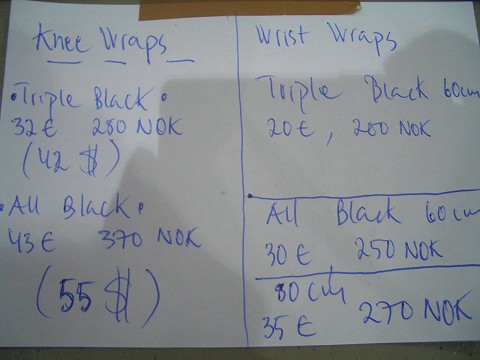 Knee Wraps
• Triple Black •
32 € 280 NOK
(42 $)
• All Black •
43 € 370 NOK
(55 $)
Wrist Wraps
Triple Black 60cm
20 €, 200 NOK
All Black 60cm
30 €, 250 NOK
80 cm
35 € 270 NOK